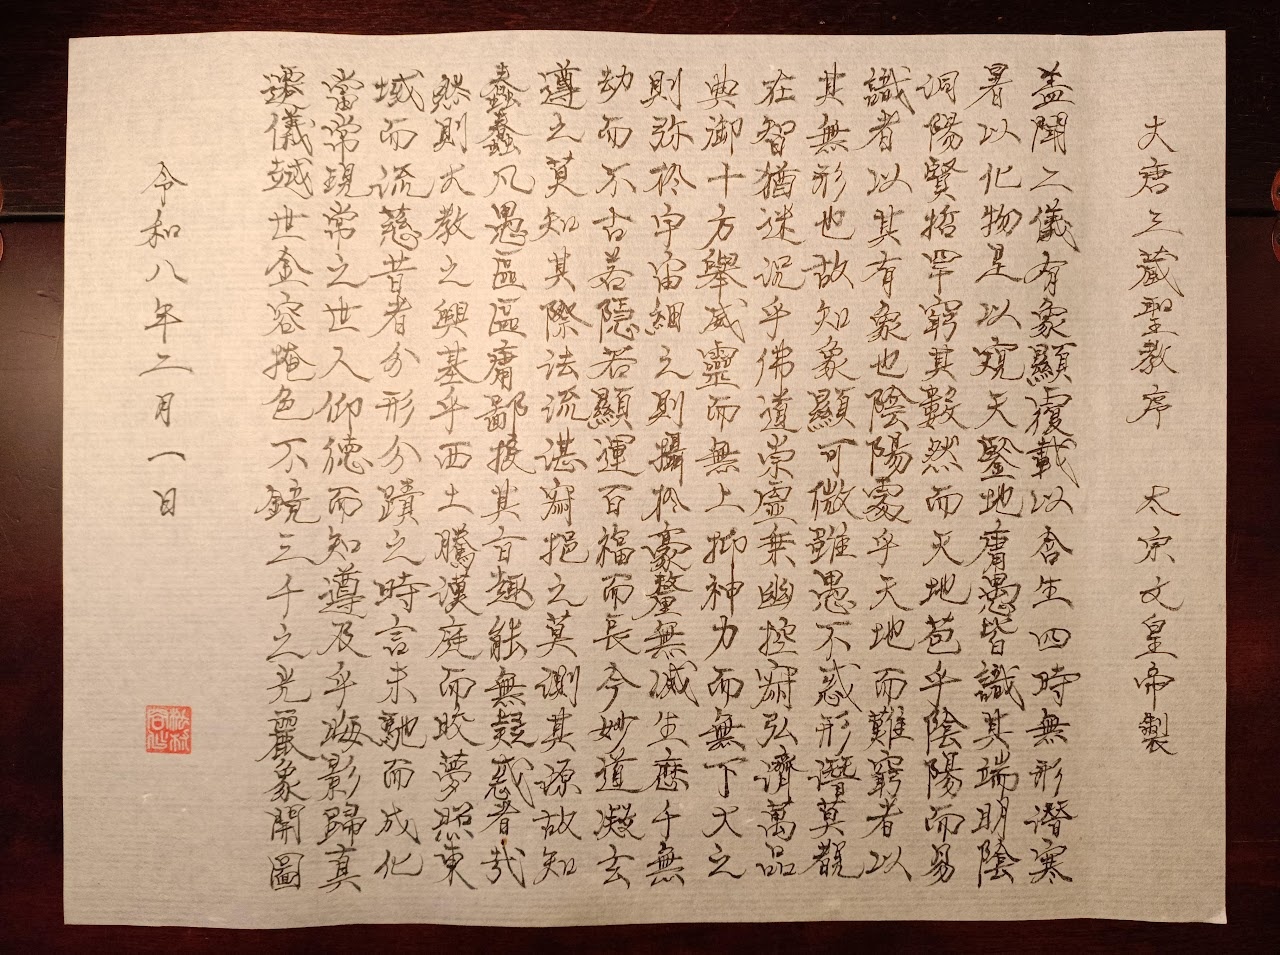 大唐三藏聖教序　太宗文皇帝製
盖聞二儀有象顯覆載以含生四時無形潛寒
暑以化物是以窺天鑒地庸愚皆識其端明陰
洞陽賢哲罕窮其數然而天地苞乎陰陽而易
識者以其有象也陰陽處乎天地而難窮者以
其無形也故知象顯可徵雖愚不惑形潛莫覩
在智猶迷況乎佛道崇虛乗幽控寂弘濟萬品
典御十方舉威靈而無上抑神力而無下大之
則弥於宇宙細之則攝於豪釐無滅生歷千無
劫而不古若隱若顯運百福而長今妙道凝玄
遵之莫知其際法流湛寂挹之莫測其源故知
蠢蠢凡愚區區庸鄙投其旨趣能無疑惑者哉
然則大教之興基乎西土騰漢庭而皎夢照東
域而流慈昔者分形分蹟之時言未馳而成化
當常現常之世人仰德而知遵及乎晦影歸真
遷儀越世金容掩色不鏡三千之光麗象開圖
令和八年二月一日